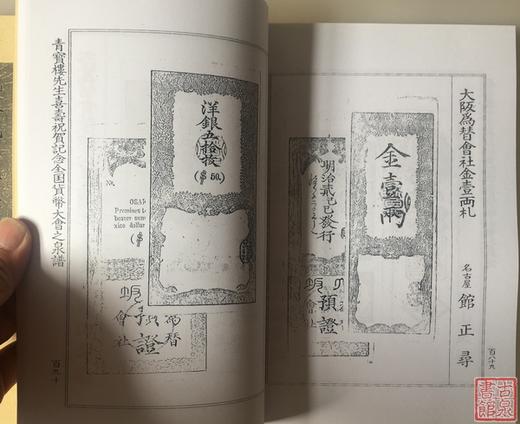 大阪為替會社金壹両札
名古屋 館正尋
百八十九
金壹兩
明治貳己巳發行
預證
會社
洋銀五拾枚
($ 50.)
No.
OSAK
Promises to
bearer
xico dollar
證
為替
會社
青寶樓先生喜壽祝賀記念全国貨幣大會之泉譜
百九十
古泉書館